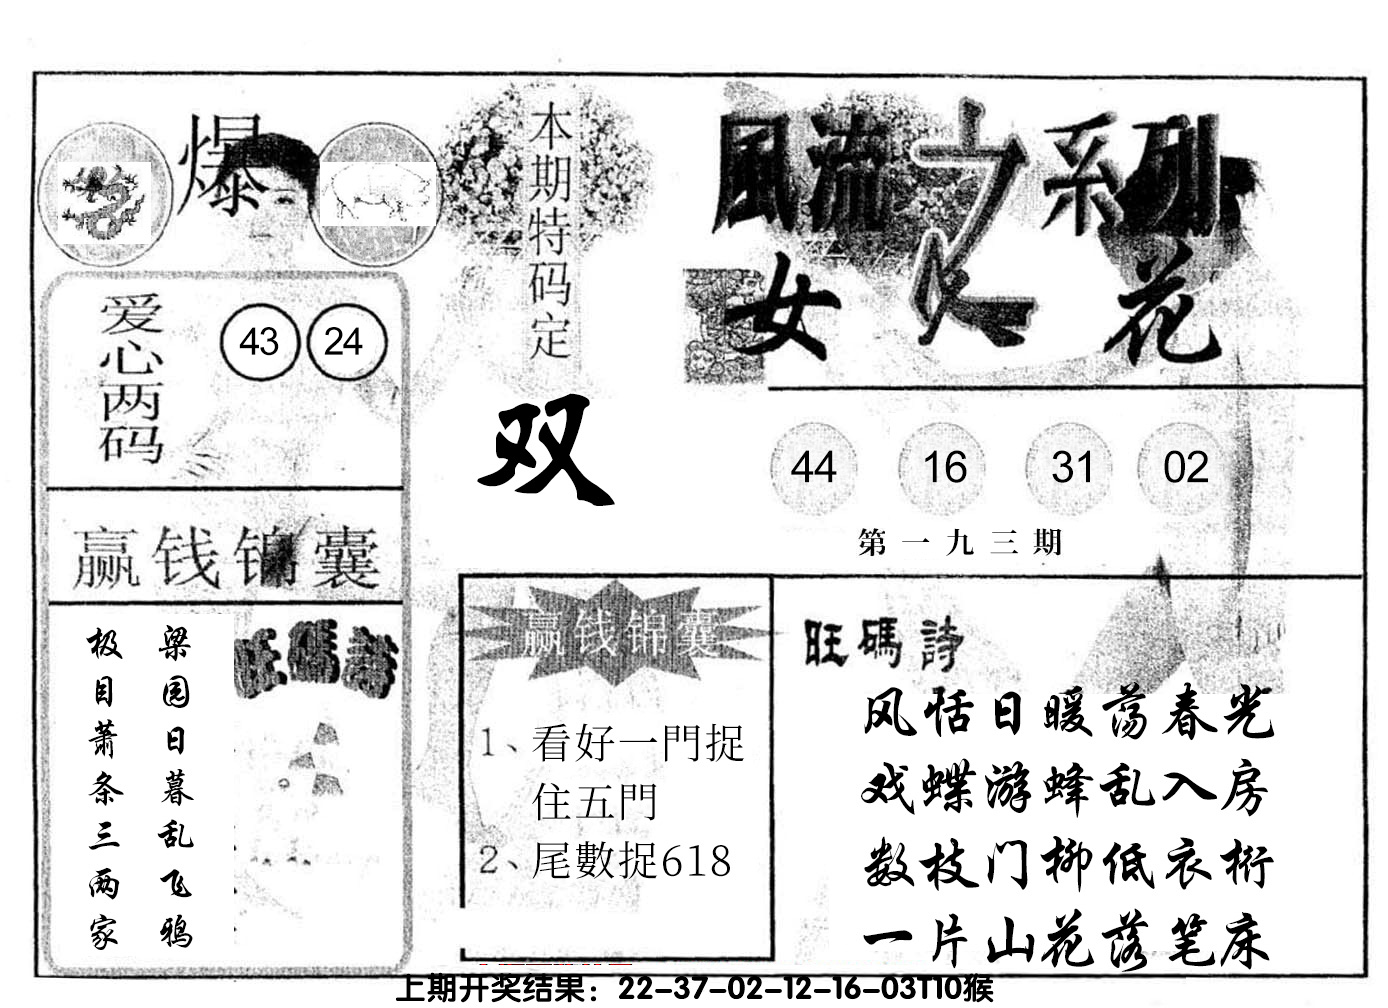 爆
本期特码定
双
風流之系列
女人花
爱心两码
43 24
44 16 31 02
第一九三期
赢钱锦囊
梁园日暮乱飞鸦
极目萧条三两家
旺碼詩
赢钱锦囊
1、看好一門捉
住五門
2、尾數捉618
旺碼詩
风恬日暖荡春光
戏蝶游蜂乱入房
数枝门柳低衣桁
一片山花落笔床
上期开奖结果：22-37-02-12-16-03T10猴